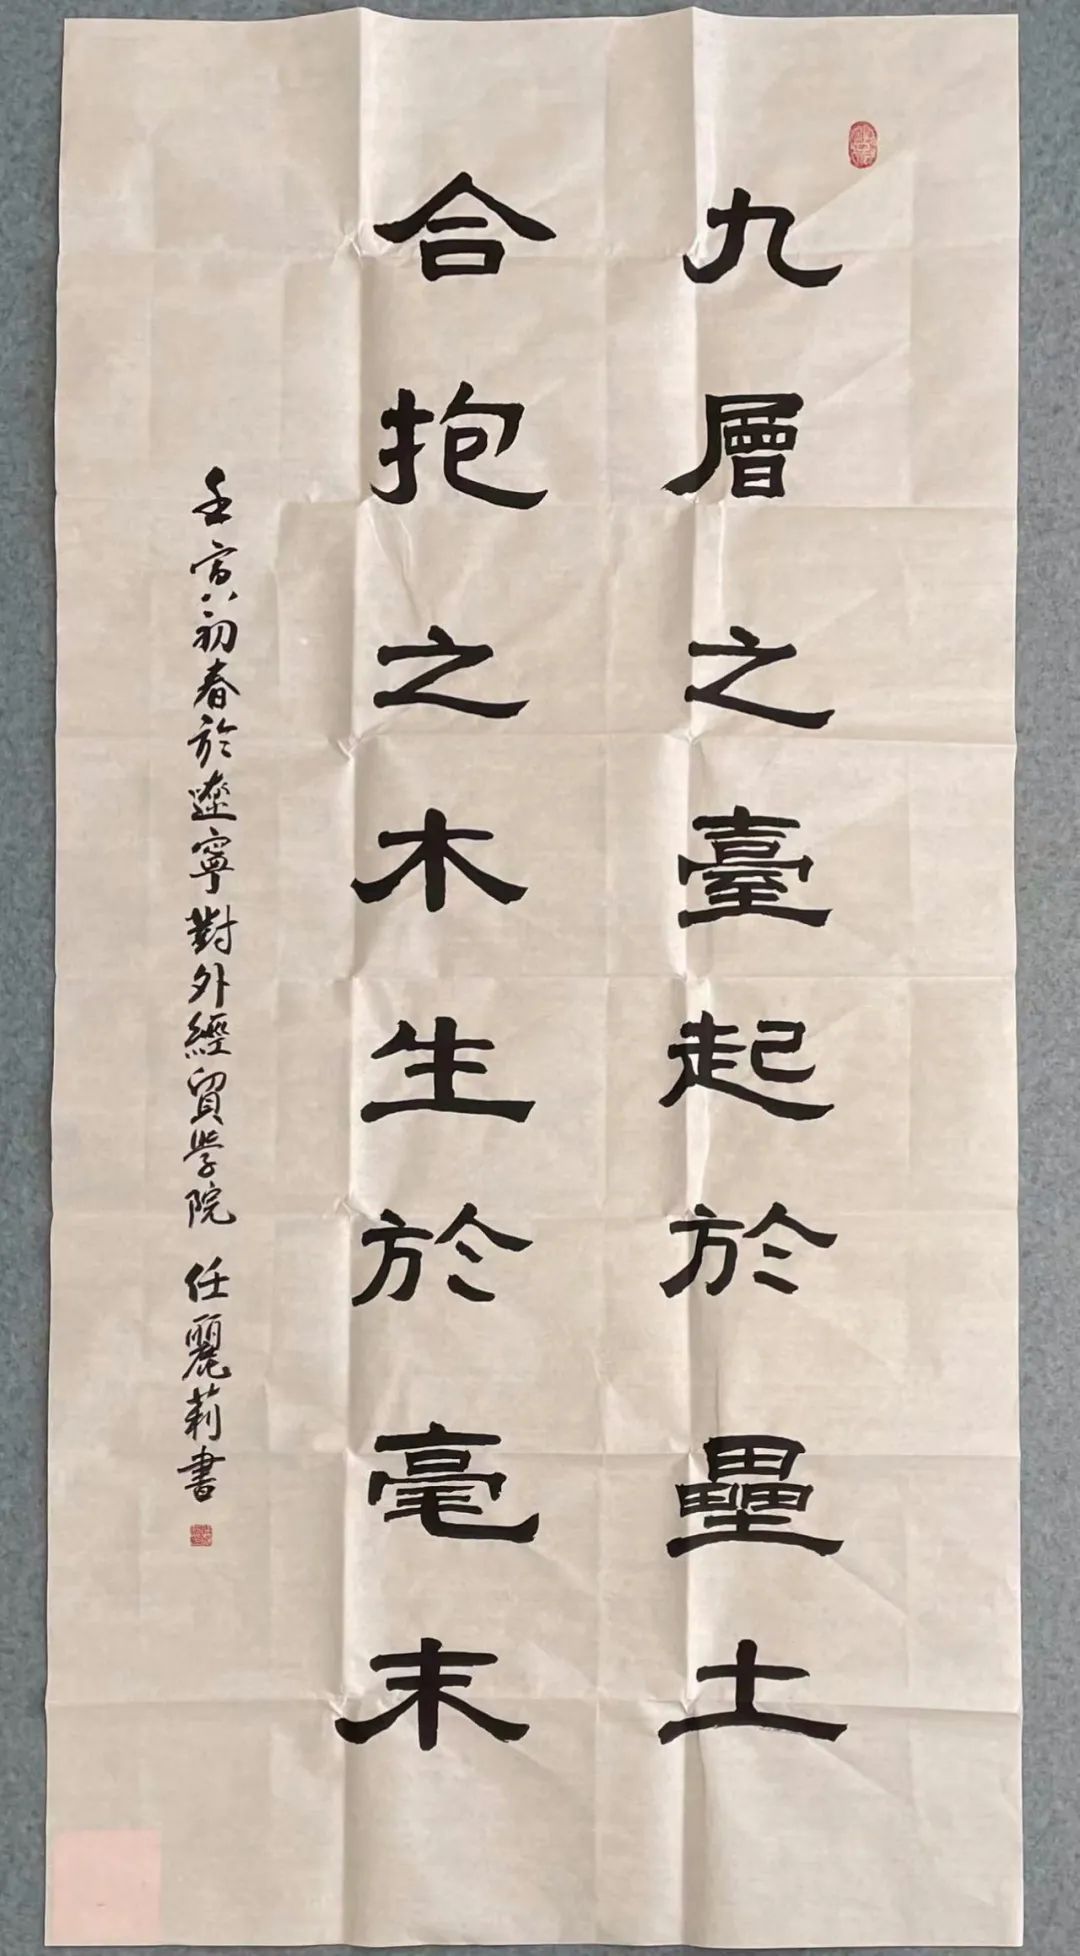 九層之臺起於壘土
合抱之木生於毫末
壬寅初春於遼寧對外經貿学院 任麗莉書